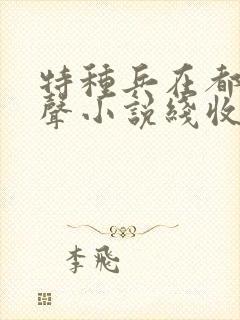 特種兵在都
聲小說綫收
李飛